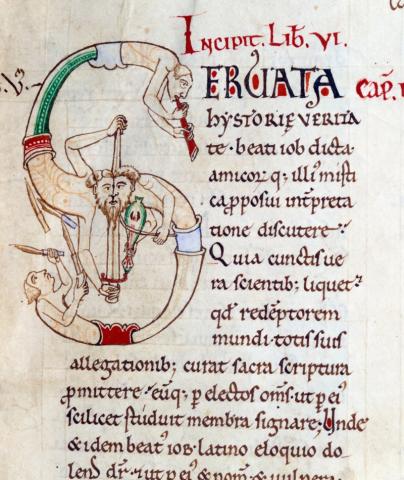 INCIPIT. LIB. VI.
SERVATA CAP.
hystorię verita
te · beati iob dicta ·
amicor q; illi' misti
ca pposui int̄preta
tione discutere ·
Quia cunctis ue
ra scientib; liquet
qd redēptorem
mundi · totis suis
allegationib; curat sacra scriptura
pmittere · eūq; p electos om̄s · ut p ei'
scilicet studuit membra signare; Unde
& idem beat' iob · latino eloquio do
lens dr̄ · ut p ei' & nom̄ · & uulnera ·